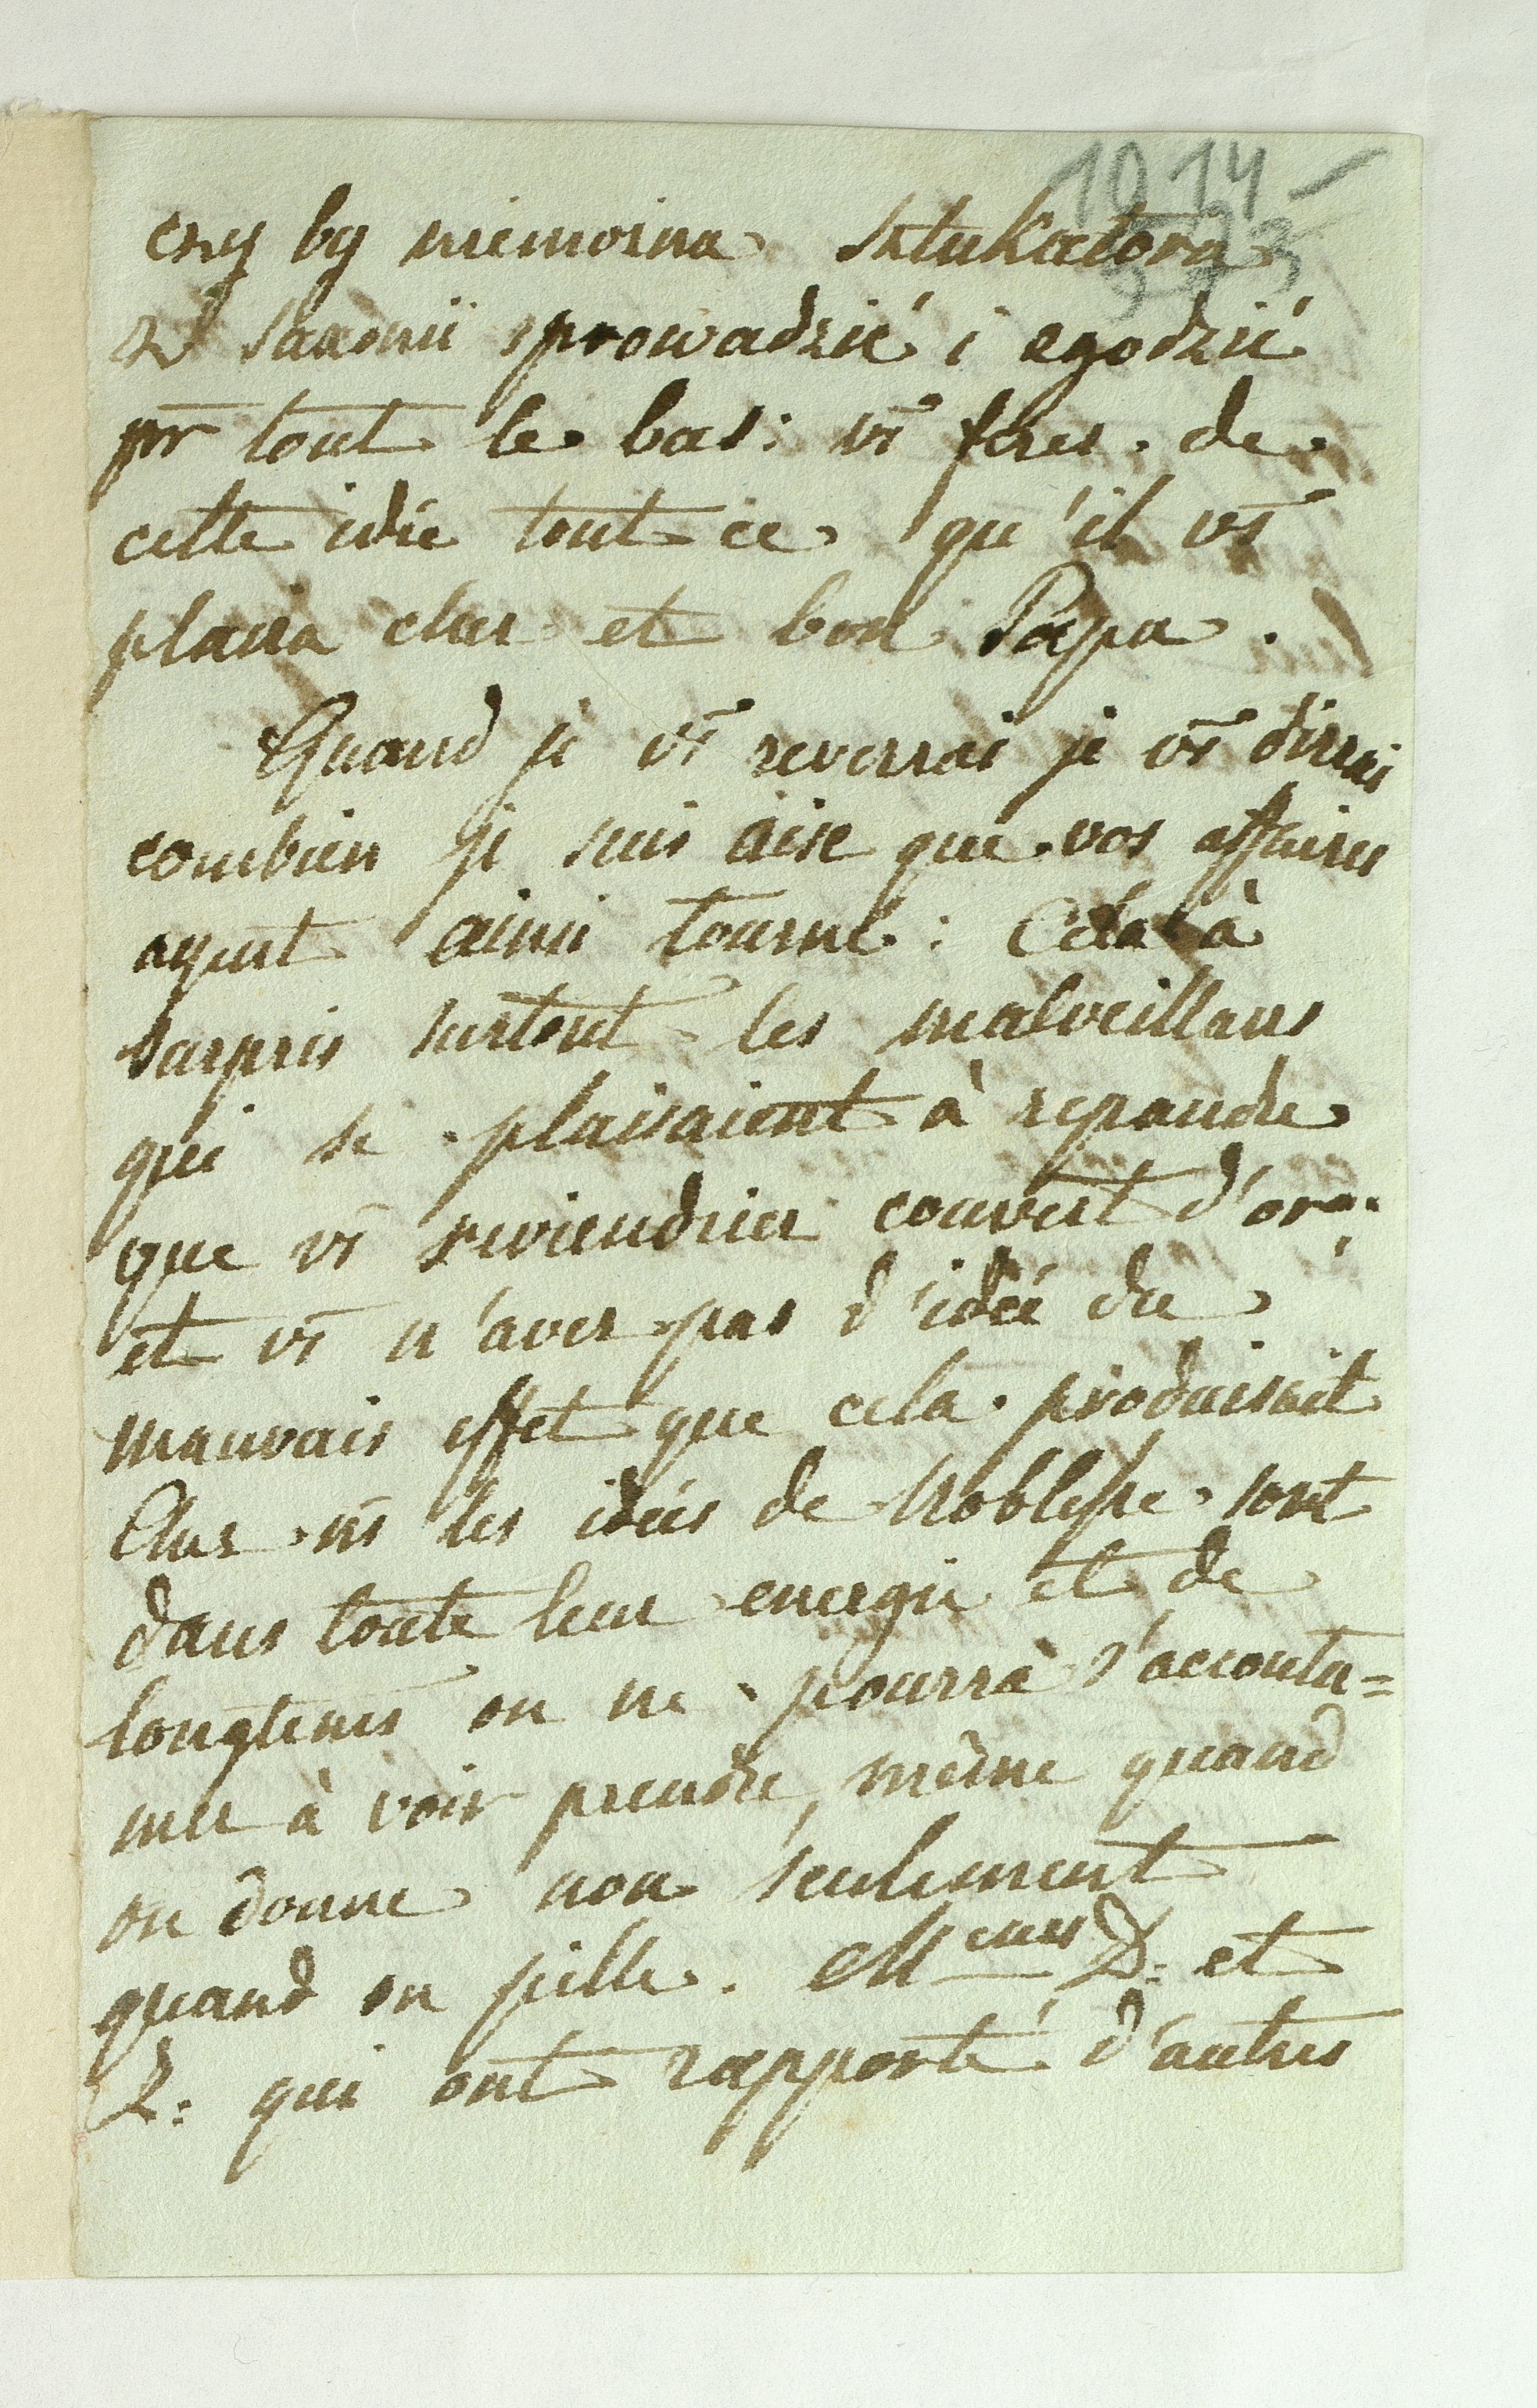 1014 -
373
czy by niemożna Sztukatora
z Saxonii sprowadzić i zgodzić
pr̄ tout le bas: vs̄ ferez de
cette idée tout ce qu'il vs̄
plaira cher et bon Papa.
Quand je vs̄ reverrai je vs̄ dirrai
combien je suis aise que vos affaires
ayent ainsi tourné: Cela à
surpris surtout les malveillans
qui se plaisaient à repandre
que vs̄ reviendriez couvert d'or;
et vs̄ n'avez pas d'idée du
mauvais effet que cela produisait
Chez ns̄ les idées de Noblesse sont
dans toute leur energie et de
longtems on ne pourra s'accoutu=
mer à voir prendre, même quand
on donne non seulement
quand on pille. Mmes D: et
L: qui ont rapporté d'autres